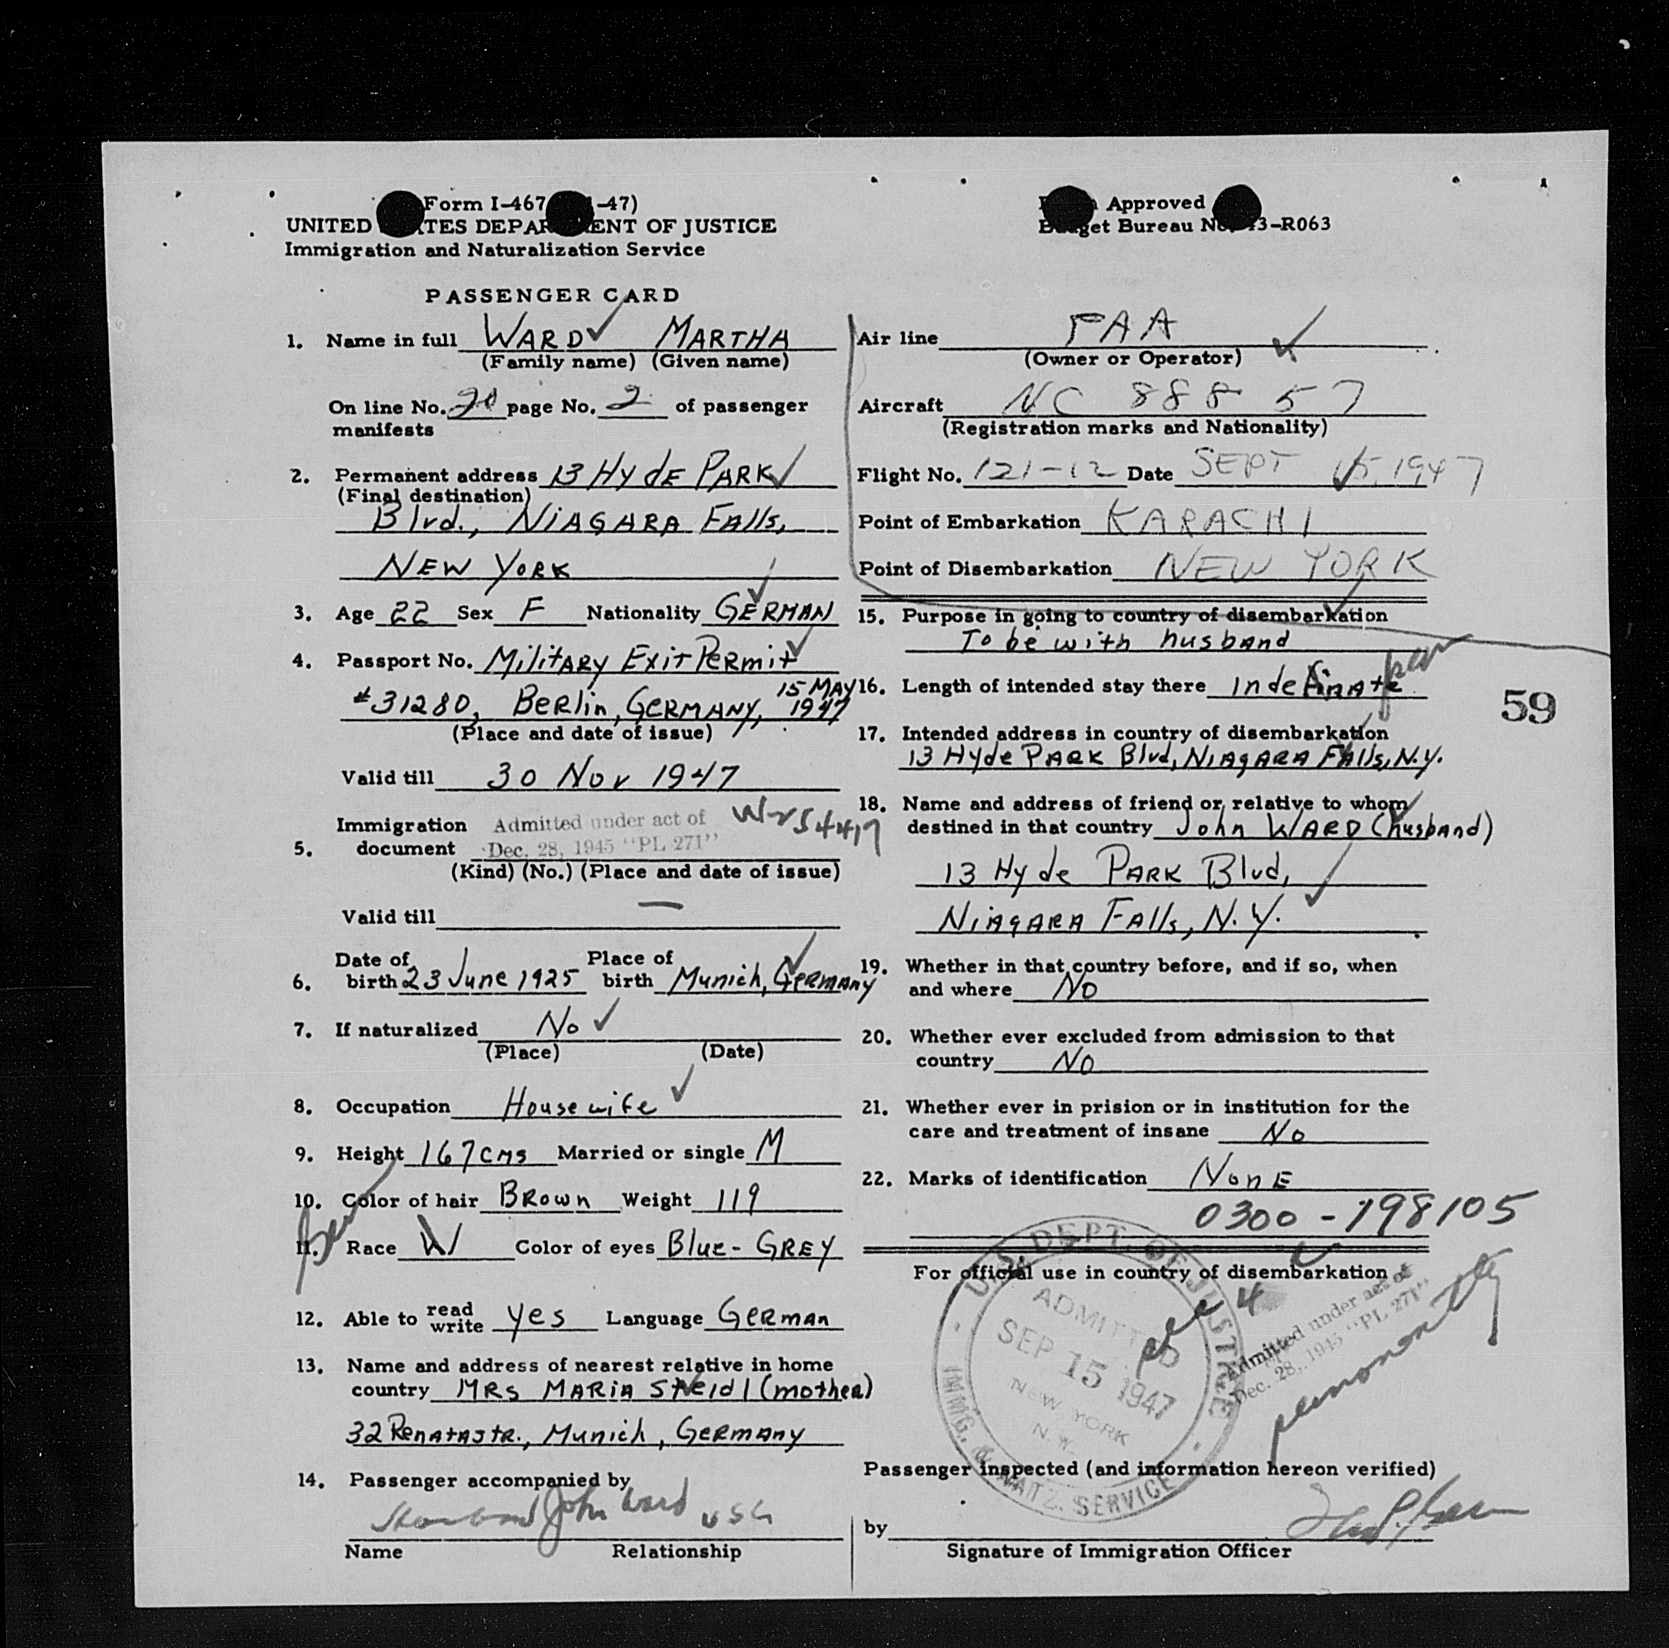 Form I-467 -47)
UNITED TES DEPAR ENT OF JUSTICE
Immigration and Naturalization Service
PASSENGER CARD
1. Name in full WARD MARTHA
(Family name) (Given name)
On line No. 20 page No. 2 of passenger
manifests
2. Permanent address 13 HYdE PARK
(Final destination)
Blvd., NIAGARA FAlls,
NEW YORK
3. Age 22 Sex F Nationality GERMAN
4. Passport No. MilitARy ExiT PeRmit
#31280, BeRlin, GERMANY, 15 MAY 1947
(Place and date of issue)
Valid till 30 Nov 1947
Immigration Admitted under act of
5. document Dec. 28, 1945 "PL 271"
(Kind) (No.) (Place and date of issue)
Valid till —
Date of Place of
6. birth 23 June 1925 birth Munich, GeRmAny
7. If naturalized No
(Place) (Date)
8. Occupation Housewife
9. Height 167 cms Married or single M
10. Color of hair BRown Weight 119
11. Race W Color of eyes Blue-GREY
12. Able to read write yes Language GeRmAn
13. Name and address of nearest relative in home
country MRs MARiA Steidl (motheR)
32 RenAtAstR., Munich, GeRmAny
14. Passenger accompanied by
Husband John Ward USC
Name Relationship
Approved
Budget Bureau No. 43-R063
Air line PAA
(Owner or Operator)
Aircraft NC 88857
(Registration marks and Nationality)
Flight No. 121-12 Date SEPT 15, 1947
Point of Embarkation KARACHI
Point of Disembarkation NEW YORK
15. Purpose in going to country of disembarkation
To be with husband
16. Length of intended stay there IndefinAte
59
17. Intended address in country of disembarkation
13 Hyde PARK Blvd, NiAgARA FAlls, N.Y.
18. Name and address of friend or relative to whom
destined in that country John WARD (husbAnd)
13 Hyde PARK Blvd,
NiAgARA FAlls, N.Y.
19. Whether in that country before, and if so, when
and where No
20. Whether ever excluded from admission to that
country No
21. Whether ever in prision or in institution for the
care and treatment of insane No
22. Marks of identification NonE
0300-198105
For official use in country of disembarkation
U.S. DEPT. OF JUSTICE
ADMITTED
SEP 15 1947
NEW YORK
N.Y.
IMMG. & NATZ. SERVICE
Admitted under act of
Dec. 28, 1945 "PL 271"
Passenger inspected (and information hereon verified)
by
Signature of Immigration Officer